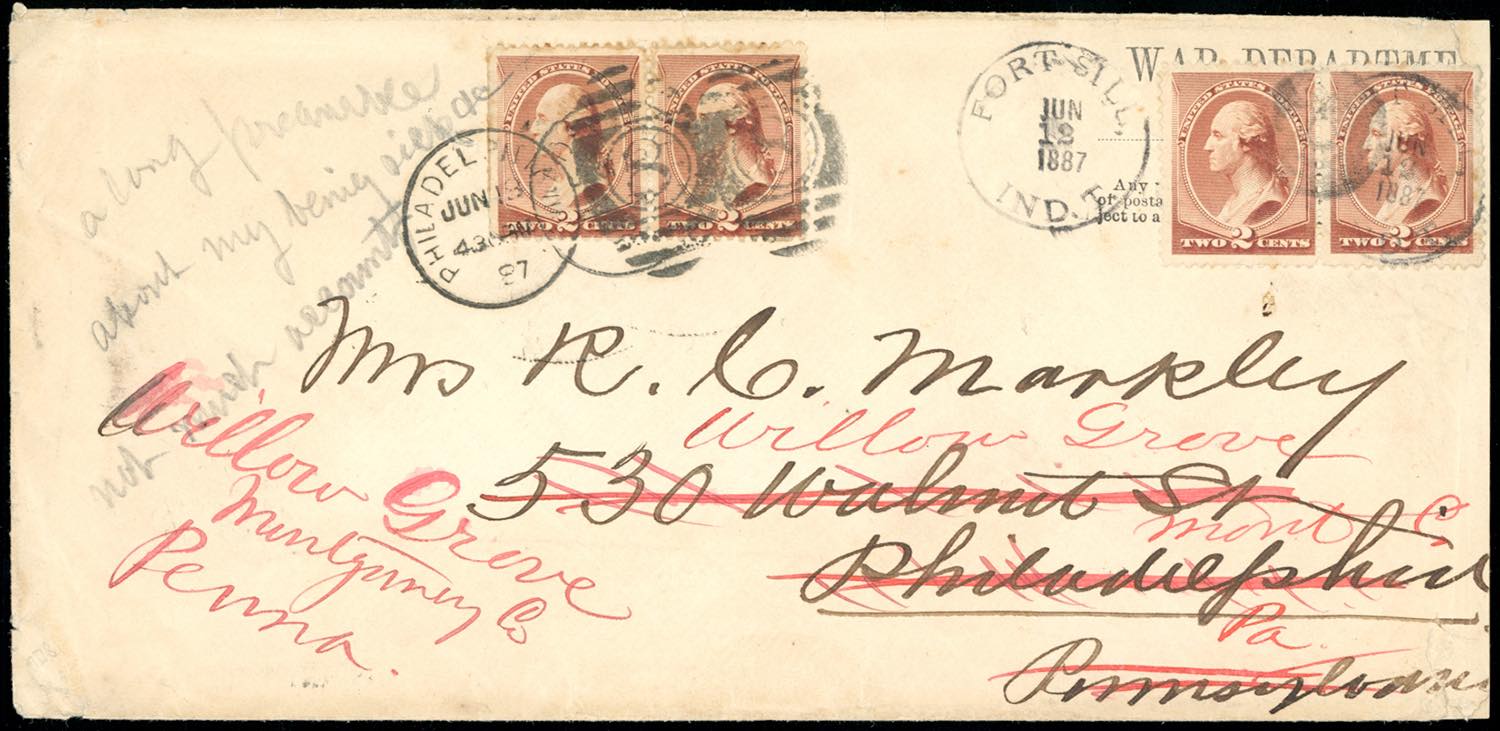 WAR DEPARTME
Any
of posta
ject to a
UNITED STATES POSTAGE
TWO 2 CENTS
UNITED STATES POSTAGE
TWO 2 CENTS
UNITED STATES POSTAGE
TWO 2 CENTS
UNITED STATES POSTAGE
TWO 2 CENTS
PHILADEL
JUN 18
430
87
FORT SILL,
JUN
18
1887
IND. T.
JUN
1887
a long preamble
about my being
not accounts
Mrs R. C. Markley
Willow Grove
530 Walnut St
Mont Co
Philadelphia
Pa.
Pennsylvani
Willow Grove
Montgomery Co
Penna.